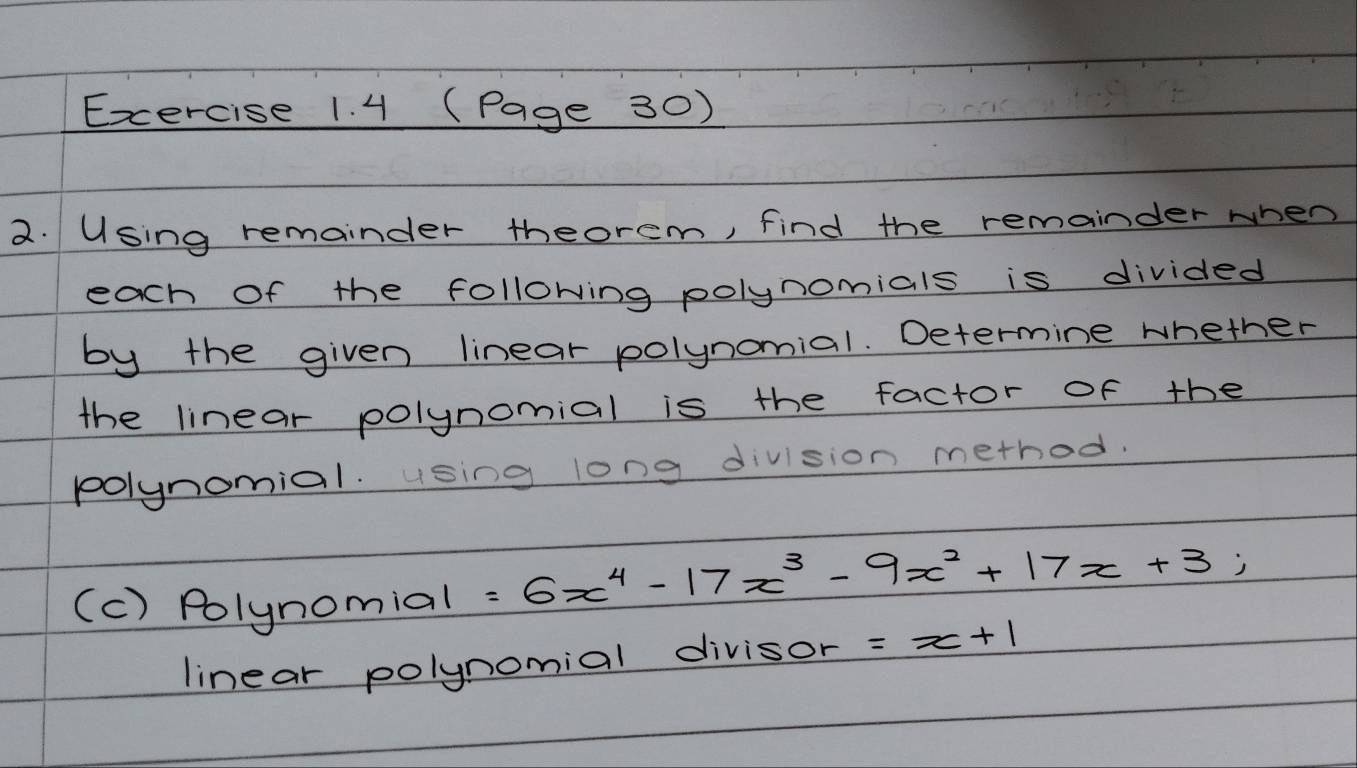 Exercise 1.4 (Page 30)
2. Using remainder theorem, find the remainder when
each of the following polynomials is divided
by the given linear polynomial. Determine whether
the linear polynomial is the factor of the
polynomial. using long division method.
(c) Polynomial = 6x⁴ - 17x³ - 9x² + 17x + 3 ;
linear polynomial divisor = x + 1